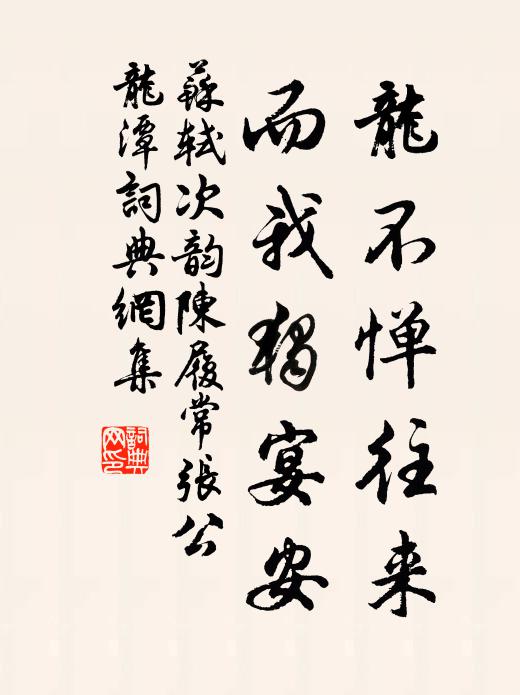 龍不惮往来
而我獨宴安
蘇軾次韵陳履常張公
龍潭詞典網集
詞典
网印